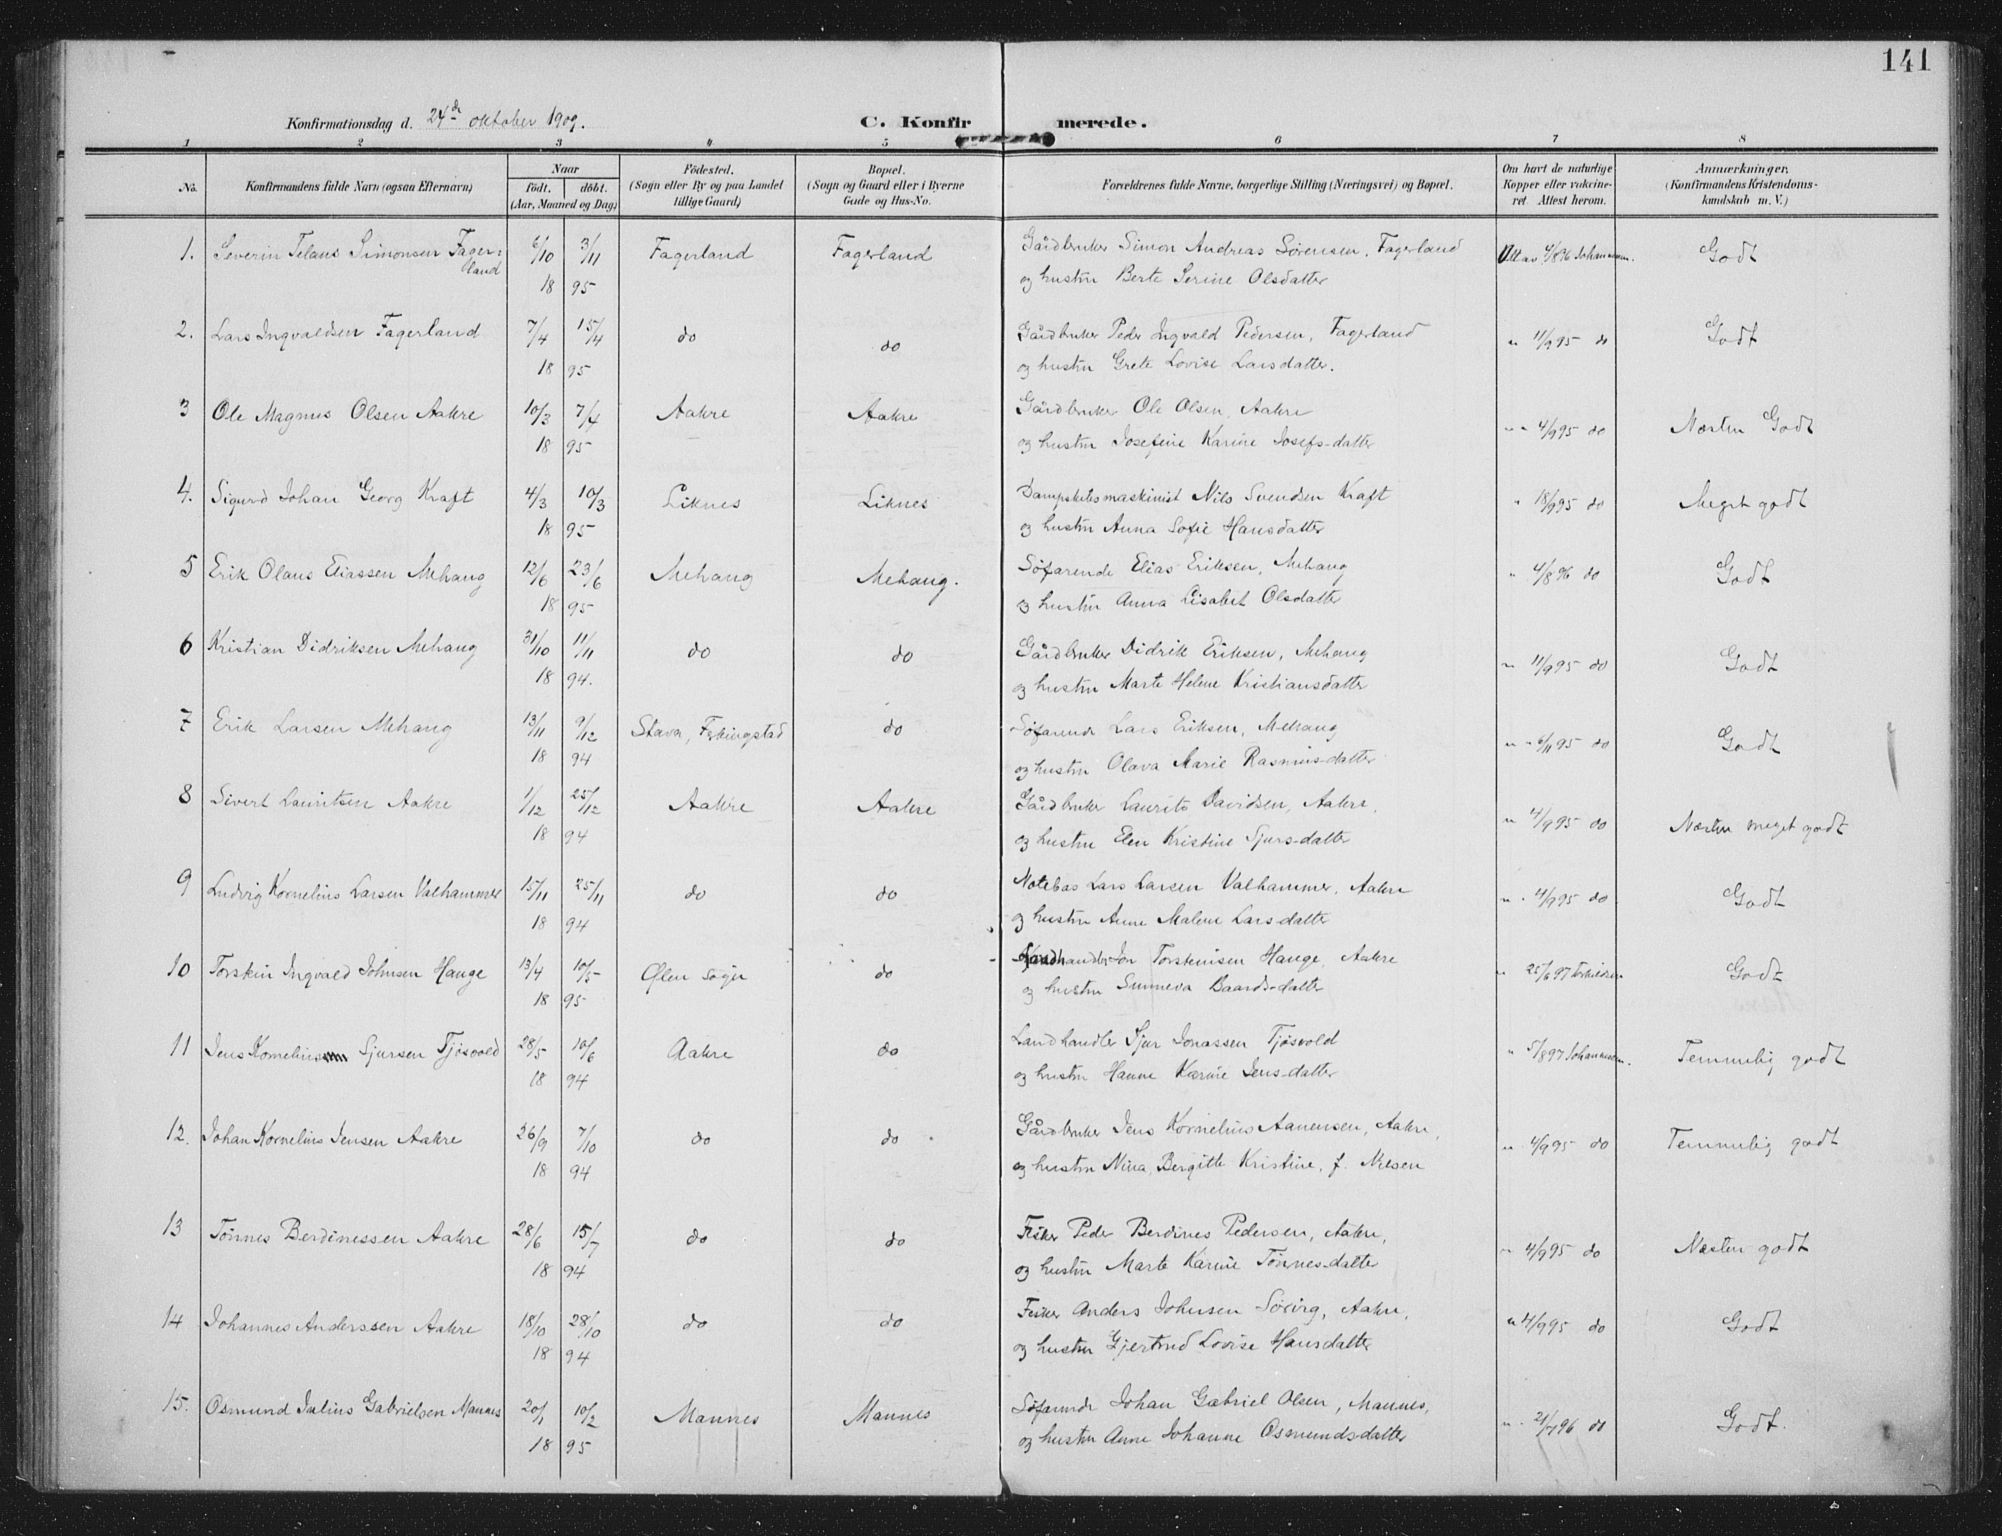 141
Konfirmationsdag d. 24de oktober 1909.
C. Konfirmerede.
1 2 3 4 5 6 7 8
No.
Konfirmandens fulde Navn (ogsaa Efternavn)
Naar
födt. döbt.
(Aar, Maaned og Dag)
Födested.
(Sogn eller By og paa Landet
tillige Gaard)
Bopæl.
(Sogn og Gaard eller i Byerne
Gade og Hus-No.
Forældrenes fulde Navne, borgerlige Stilling (Næringsvei) og Bopæl.
Om havt de naturlige
Kopper eller vakcine-
ret Attest herom.
Anmærkninger.
(Konfirmandens Kristendoms-
kundskab m. V.)
1. Severin Simonsen Fager-
land 6/10 3/11 Fagerland Fagerland Gårdbruker Simon Andreas Sørensen, Fagerland 4/8 96 Johannesen. Godt
18 95 og hustru Berte Serine Olsdatter
2. Lars Ingvaldsen Fagerland 7/4 15/4 do do Gårdbruker Peder Ingvald Pedersen, Fagerland " 11/9 95 do Godt
18 95 og hustru Grete Lovise Larsdatter.
3 Ole Magnus Olsen Aakre 10/3 7/4 Aakre Aakre Gårdbruker Ole Olsen, Aakre " " 4/9 95 do Næsten Godt
18 95 og hustru Josefine Karine Josefs-datter
4. Sigurd Johan Georg Kraft 4/3 10/3 Liknes Liknes Dampskibsmaskinist Nils Svendsen Kraft " 18/9 95 do Meget godt
18 95 og hustru Anna Sofie Hansdatter
5 Erik Olaus Eliassen Mehaug 12/6 23/6 Mehaug Mehaug. Søfarende Elias Eriksen, Mehaug " 4/8 96 do Godt
18 95 og hustru Anna Lisabet Olsdatter
6 Kristian Didriksen Mehaug 31/10 11/11 do do Gårdbruker Didrik Eriksen, Mehaug " 11/9 95 do Godt
18 94. og hustru Marte Helene Kristiansdatter
7 Erik Larsen Mehaug 13/11 9/12 Stava, Ferkingstad do Søfarende Lars Eriksen, Mehaug " " 6/11 95 do Godt
18 94 og hustru Olava Marie Rasmus-datter
8 Sivert Lauritsen Aakre 1/12 25/12 Aakre Aakre Gårdbruker Laurits Davidsen, Aakre, " 4/9 95 do Næsten meget godt
18 94 og hustru Elen Kristine Sjurs-datter
9 Ludvig Kornelius Larsen Valhammer 15/11 25/11 do do Notebas Lars Larsen Valhammer, Aakre " 4/9 95 do Godt
18 94 og hustru Anne Malene Lars-datter
10 Torstein Ingvald Johnsen Hauge 13/4 10/5 Ølen sogn do Jon Torsteinsen Hauge, Aakre " 25/6 97 Godt
18 95 og hustru Sunneva Baards-datter
11 Jens Kornelius Sjursen Tjøsvold 28/5 10/6 Aakre do Landhandler Sjur Jonassen Tjøsvold " 5/8 97 Johannesen. Temmelig godt
18 94 og hustru Hanne Karine Jens-datter
12. Johan Kornelius Jensen Aakre 26/9 7/10 do do Gårdbruker Jens Kornelius Aanensen, Aakre, " 4/9 95 do Temmelig godt
18 94 og hustru Nina, Bergitte Kristine, f. Nilsen
13 Tønnes Berdinessen Aakre 28/6 15/7 do do Fisker Peder Berdines Pedersen, Aakre, " 4/9 95 do Næsten godt
18 94 og hustru Marte Karine Tønnes-datter
14 Johannes Anderssen Aakre 18/10 28/10 do do Fisker Anders Johnsen Søring, Aakre, " 4/9 95 do Godt
18 94 og hustru Gjertrud Lovise Hansdatter
15. Osmund Julius Gabrielsen Mannes 20/1 10/2 Mannes Mannes Søfarende Johan Gabriel Olsen, Mannes, " 21/7 96 do Godt.
18 95 og hustru Anne Johanne Osmundsdatter